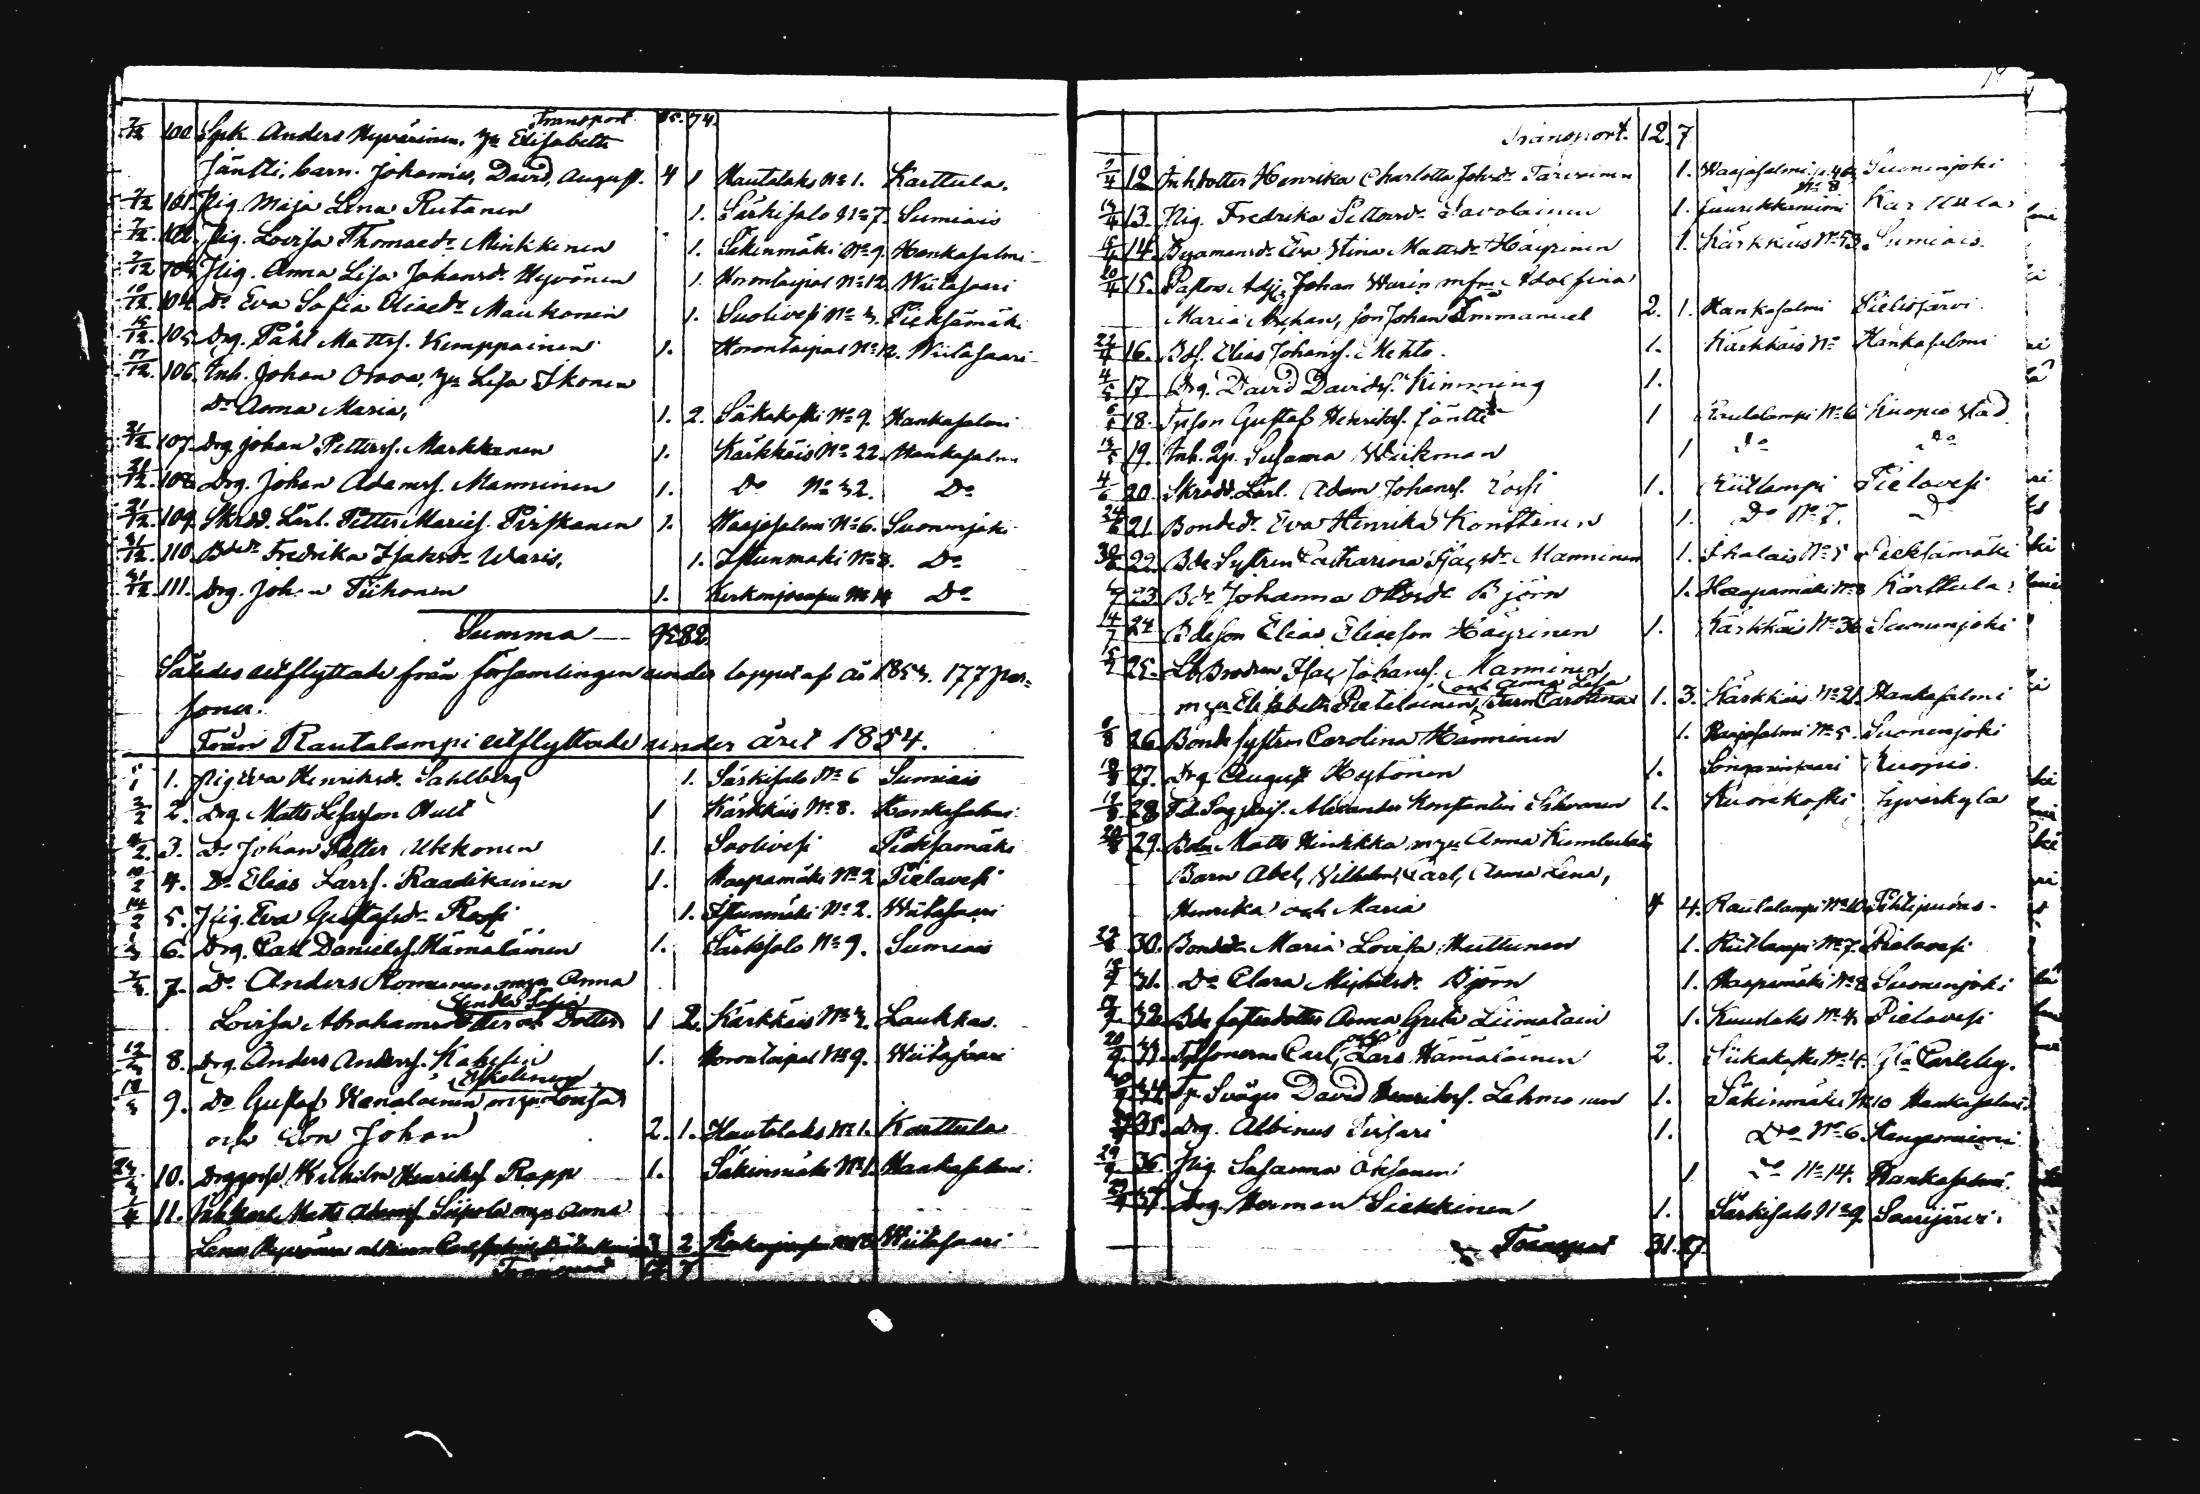 Transport 85. 74.
7/12 100. Spk. Anders Hyvärinen, hu Elisabeth
Jäntti, barn. Johannes, David, August. 4 1 Hautolaks No 1. Karttula.
7/12 101. Pig. Maja Lena Rutanen 1. Särkisalo No 7. Sumiais
7/12 102. Pig. Lovisa Thomaedr Minkkinen 1. Säkinmäki No 9. Hankasalmi
7/12 103. Pig. Anna Lisa Johansdr Hyvönen 1. Horontaipal No 12. Wiitasaari
10/12 104. Do Eva Sofia Eliaedr Maukonen 1. Suolivesi No 3. Pieksämäki
15/12 105. Drg. Påhl Mattss. Kemppainen 1. Horontaipal No 12. Wiitasaari
17/12 106. Inh. Johan Orava, hu Lisa Ikonen
Dr Anna Maria, 1. 2. Säkakoski No 9. Hankasalmi
21/12 107. Drg. Johan Petterss. Markkanen 1. Kärkkäis No 22. Hankasalmi
21/12 108. Drg. Johan Adamss. Manninen 1. Do No 32. Do
21/12 109. Skrdd. Lärl. Petter Mariess. Pirskanen 1. Waajasalmi No 6. Suonenjoki
31/12 110. Bdedr Fredrika Isaksdr Waris, 1. Istunmäki No 8. Do
31/12 111. Drg. Johan Tiihonen 1. Kerkonjoensuu No 14 Do
Summa 95 82
Således utflyttade från församlingen under loppet af år 1853. 177 per-
soner.
Från Rautalampi utflyttade under året 1854.
5/1 1. Pig. Eva Henriksdr Sahlberg 1. Särkisalo No 6 Sumiais
2/2 2. Drg. Matts 1 Kärkkäis No 8. Hankasalmi
4/2 3. Do Johan Petter Ukkonen 1. Suolivesi Pieksamäki
10/2 4. Do Elias Larss. Raadikainen 1. Haapamäki No 2 Pielavesi
14/2 5. Pig. Eva Gustafsdr Rossi 1. Istunmäki No 2. Wiitasaari
1/3 6. Drg. Carl Danielss. Hämäläinen 1. Särkisalo No 9. Sumiais
7/3 7. Do Anders Romunen m hu Anna
Lovisa Abrahamsdotter och Dotter 1 2. Kärkkäis No 3. Laukkas.
12/3 8. Drg. Anders Anderss. 1. Horontaipal No 9. Wiitasaari
18/3 9. Do Gustaf Wanalainen m hu Lovisa
och Son Johan 2. 1. Hautolaks No 1. Karttula
23/3 10. Wilhelm Henrikss Rapp 1. Säkinmäki No 1. Hankasalmi.
1/4 11. Matts Adamss Siipola m hu Anna
Lena 3 2. Wiitasaari
Transport 12 7
Transport. 12. 7
2/4 12. Inh. dotter Henrika Charlotta Johsdr Tarvainen 1. Waajasalmi Suonenjoki
13/4 13. Pig. Fredrika Pettersdr Savolainen 1. Juurikkaniemi No 8 Karttula
15/4 14. Byamansdr Eva Stina Mattsdr Häyrinen 1. Kärkkäis No 53. Sumiais.
20/4 15. Pastors Adj. Johan Warin m fru Adolfina
Maria son Johan Immanuel 2. 1. Hankasalmi Pielisjärvi
22/4 16. Bds. Elias Johanss. Mehto. 1. Kärkkäis No Hankasalmi
4/5 17. Drg. David Davidss. Kimming 1.
6/5 18. Gustaf Henrikss. Jäntti 1 Rautalampi No 6 Kuopio Stad
13/5 19. Inh. Susanna Wiikman 1 Do Do
4/6 20. Skrädd. Lärl. Adam Johanss. Rossi 1. Kiitlampi Pielavesi
24/6 21. Bondedr Eva Henrika Konttinen 1. Do No 7. Do
30/6 22. Bde Systren Catharina Isacsdr Manninen 1. Ihalais No 5 Pieksämäki
23. Bdr Johanna Ottosdr Björn 1. Haapamäki No 8 Karttula
14/7 24. Bdeson Elias Eliaeson Häyrinen 1. Kärkkäis No 36 Suonenjoki
15/7 25. Isac Johanss. Manninen
och Anna Lisa
m hu Elisabeth Pietiläinen, Carolina 1. 3. Kärkkäis No 21. Hankasalmi
8/8 26. Bonde systren Carolina Hänninen 1. Waajasalmi No 5. Suonenjoki
27. Drg. August Heytönen 1. Kuopio.
28. Alexander Konstantin 1. Kuorekoski Jyväskylä
29. Bden Matts Hinkkka m hu Anna
Barn Abel, Vilhelm, Carl, Anna Lena,
Henrika och Maria 4 4. Rautalampi No 10 Pihtipudas.
30. Bondedr Maria Lovisa Huttunen 1. Kiitlampi No 7. Pielavesi
31. Do Clara Michelsdr Björn 1. Haapamäki No 8 Suonenjoki
32. Anna Greta Liimatain 1. Kuuslaks No 4. Pielavesi
33. Carl och Lars Hämäläinen 2. Siikakoski No 4. Gla Carleby.
34. Svåger David Henrikss. Lahmonen 1. Säkinmäki No 10 Hankasalmi.
35. Drg. Albinus 1. Do No 6. Kangasniemi
29/9 36. Pig. Susanna Oksanen 1 Do No 14. Hankasalmi.
37. Drg. Herman Siekkinen 1. Särkisalo No 9. Saarijärvi.
Transport 31. 17